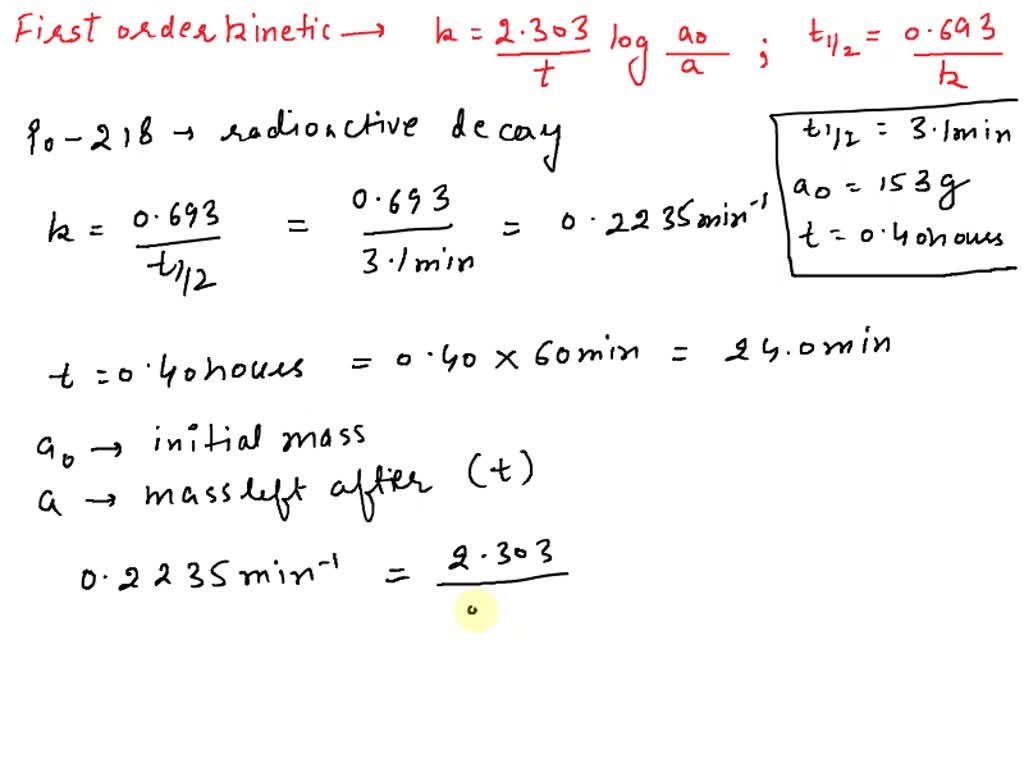 First order kinetic → k = 2.303/t log a₀/a ; t₁/₂ = 0.693/k
Po-218 → radioactive decay
t₁/₂ = 3.1min
a₀ = 153g
t = 0.40hours
k = 0.693/t₁/₂ = 0.693/3.1min = 0.2235min⁻¹
t = 0.40hours = 0.40 × 60min = 24.0min
a₀ → initial mass
a → mass left after (t)
0.2235min⁻¹ = 2.303/